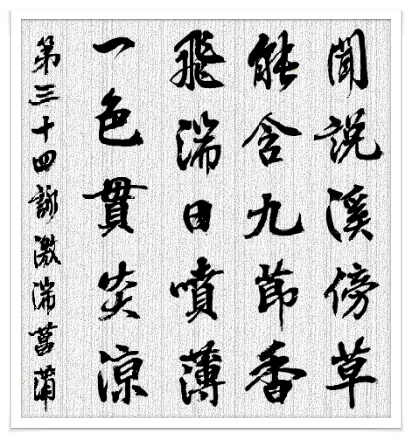 聞說溪傍草
能含九節香
飛湍日噴薄
一色貫炎涼
第三十四詠激湍菖蒲